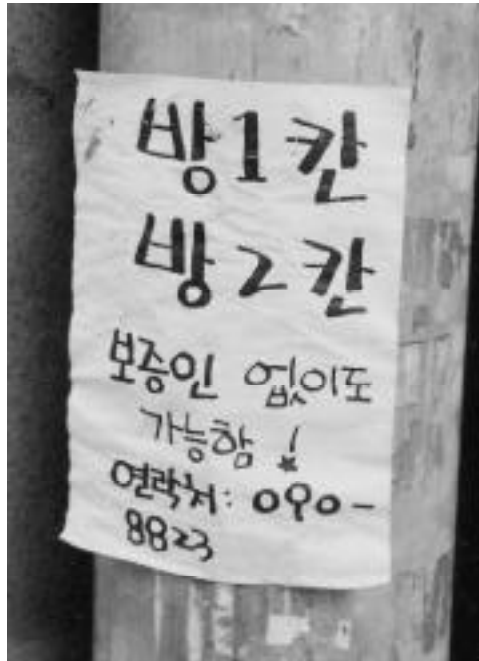 방1칸
방2칸
보증인 없이도
가능함!
연락처: 090-
8823